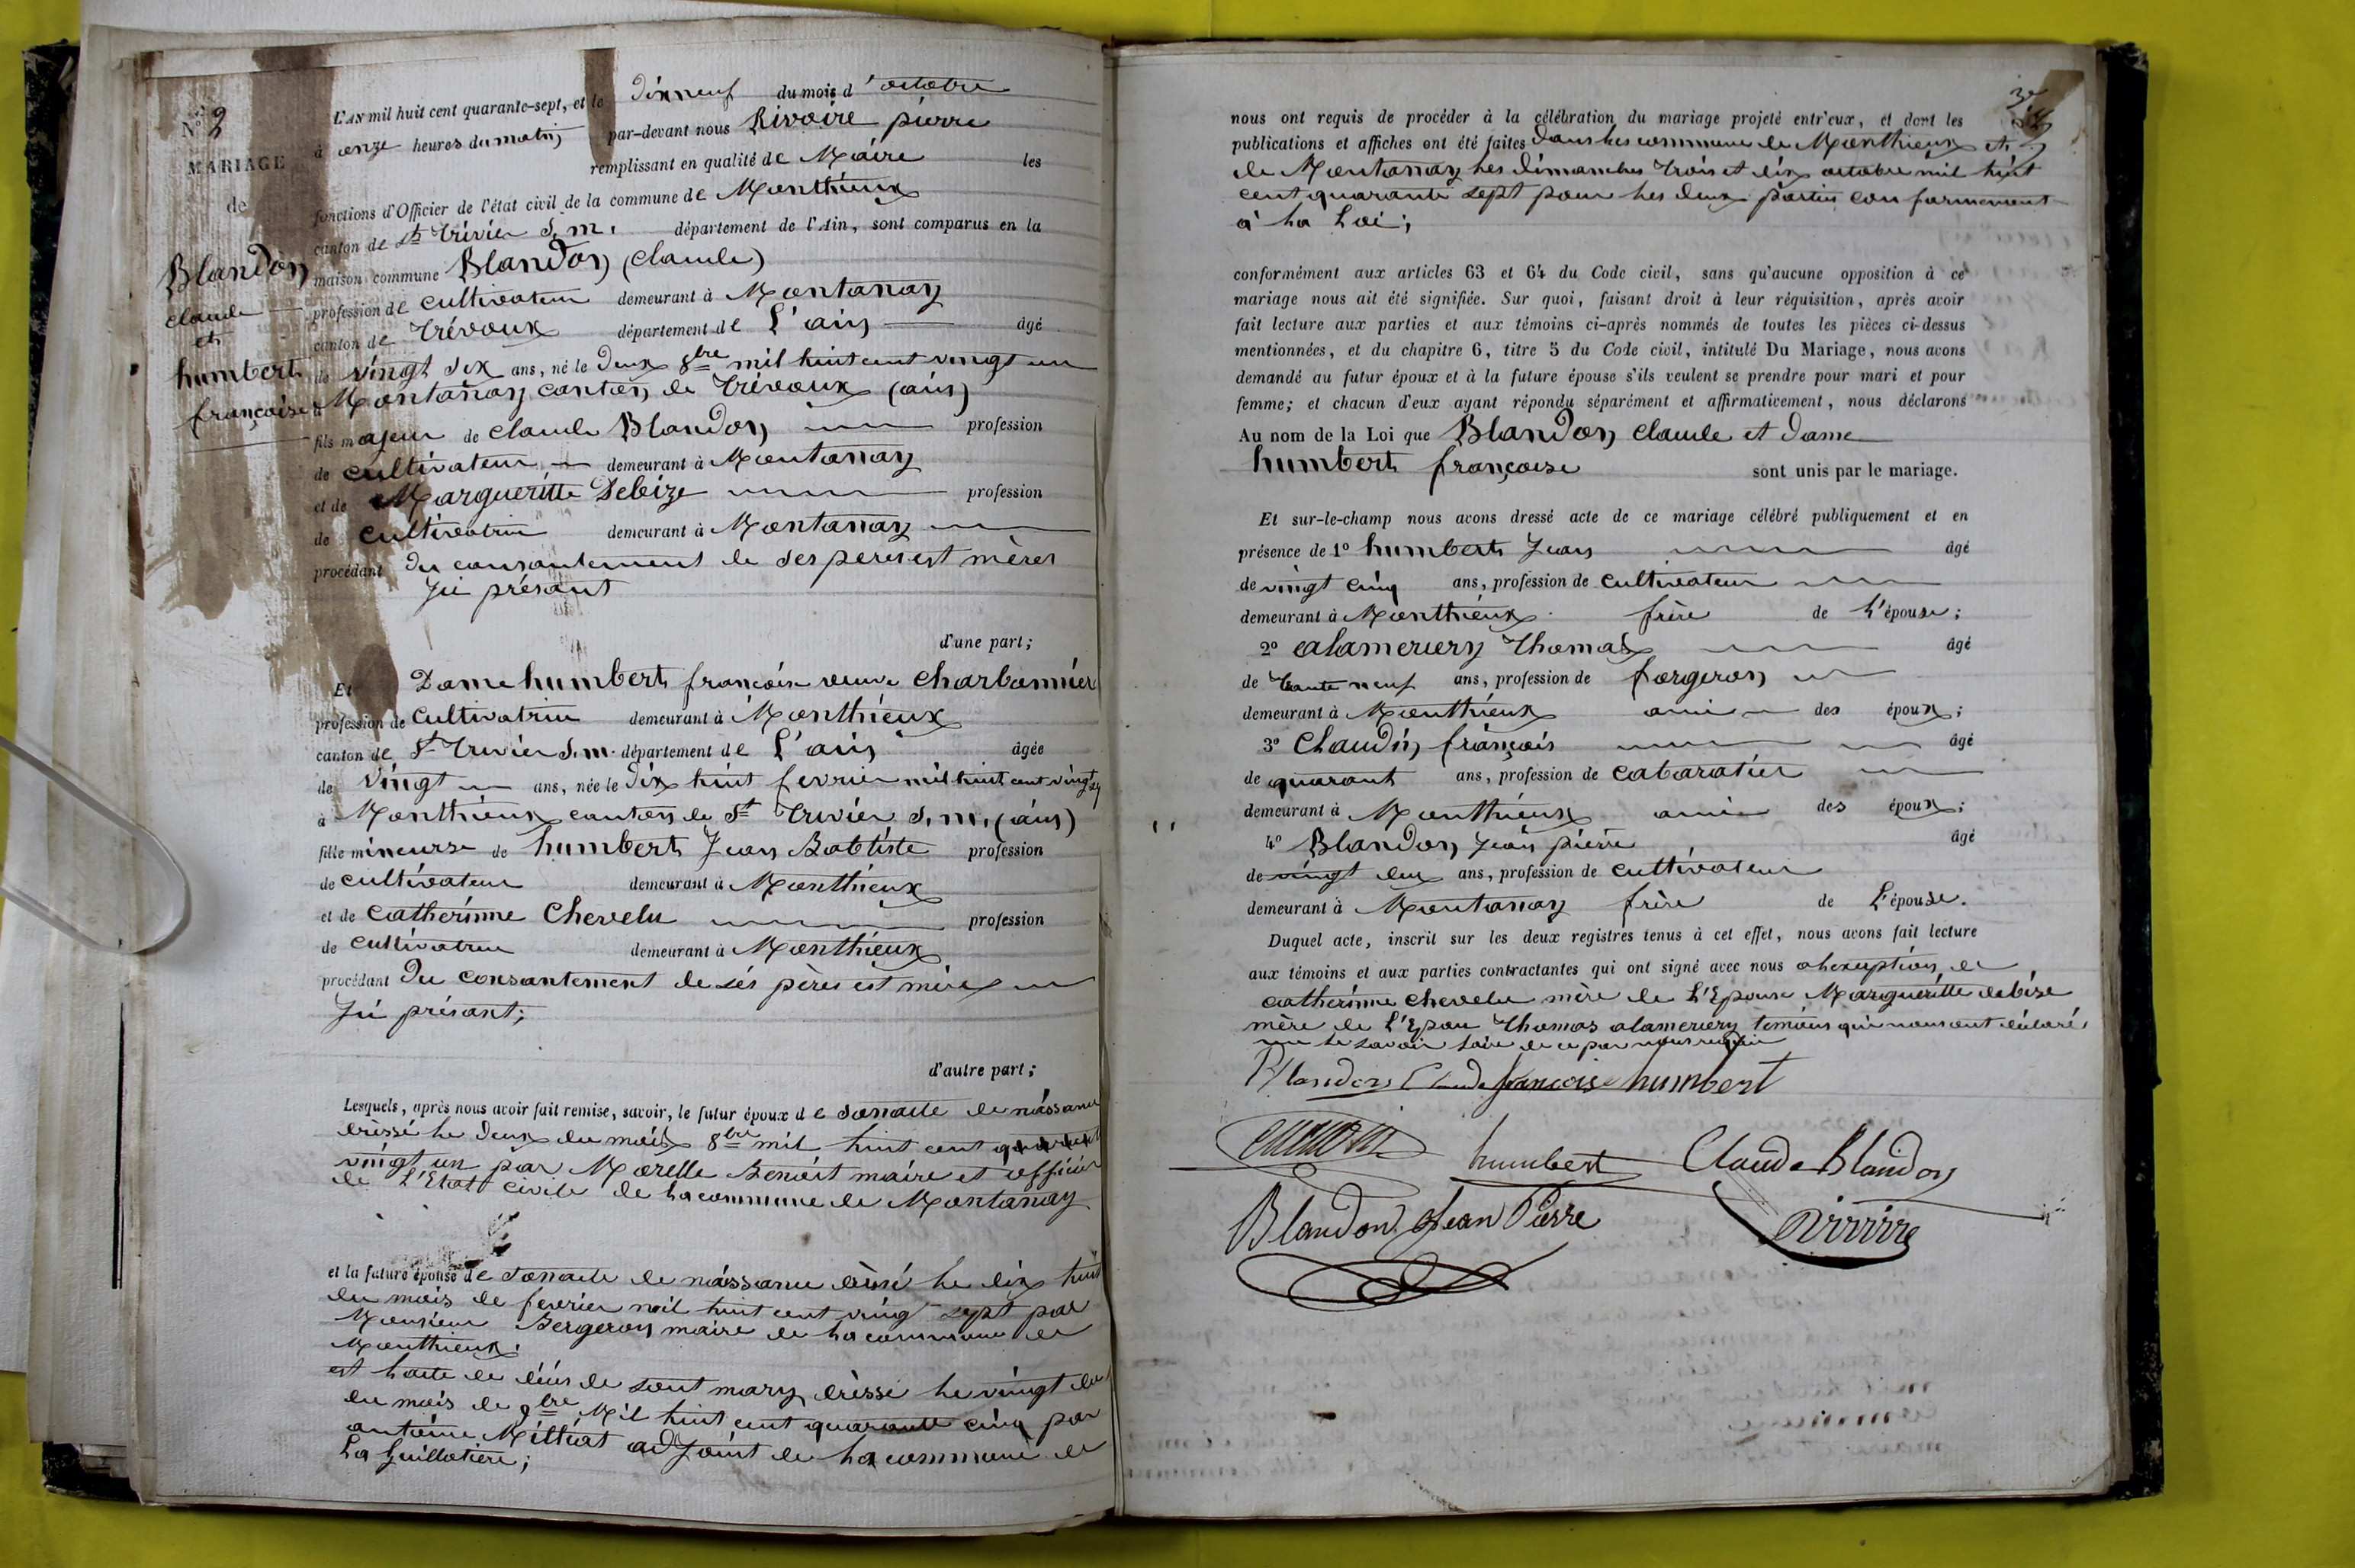 N° 2
MARIAGE
de
Blandon
claude
et
humbert
françoise
L'AN mil huit cent quarante-sept, et le dixneuf du mois d'octobre
à onze heures du matin par-devant nous Rivoire pierre
remplissant en qualité de Maire les
fonctions d'Officier de l'état civil de la commune de Monthieux
canton de St Trivier S. m. département de l'Ain, sont comparus en la
maison commune Blandon (claude)
profession de cultivateur demeurant à Montanay
canton de Trévoux département de L'ain âgé
de vingt six ans, né le deux 8bre mil huit cent vingt un
à Montanay canton de Trévoux (ain)
fils majeur de claude Blandon profession
de cultivateur demeurant à Montanay
et de Margueritte Debize profession
de cultivatrice demeurant à Montanay
procédant du consantement de ses peres est mères
Jci présant
d'une part;
Et Dame humbert françoise veuve Charbonnier
profession de cultivatrice demeurant à Monthieux
canton de St Trivier S. m. département de L'ain âgée
de vingt ans, née le dix huit fevrier mil huit cent vingt
à Monthieux canton de St Trivier S. m. (ain)
fille mineurse de humbert Jean Batiste profession
de cultivateur demeurant à Monthieux
et de Catherinne Chevelu profession
de cultivatrice demeurant à Monthieux
procédant du consantement de sés pères est mères
Jci présant;
d'autre part;
Lesquels, après nous avoir fait remise, savoir, le futur époux de sonacte de naissance
dréssé le deux du mois 8bre mil huit cent
vingt un par Morelle Benoit maire et officier
de L'Etat civile de la commune de Montanay
et la future épouse de sonacte de naissance dréssé le dix huit
du mois de fevrier mil huit cent vingt sept par
Monsieur Bergeron maire de la commune de
Monthieux.
est l'acte de décès de sont mary dréssé le vingt
du mois de 9bre Mil huit cent quarante cinq par
antoine Milliat adJoint de la commune de
La Guillotière;
nous ont requis de procéder à la célébration du mariage projeté entr'eux, et dont les
publications et affiches ont été faites dans les commune de Monthieux et
de Montanay les dimanches trois et dix octobre mil huit
cent quarante sept pour les deux parties conformement
à la Loi;
conformément aux articles 63 et 64 du Code civil, sans qu'aucune opposition à ce
mariage nous ait été signifiée. Sur quoi, faisant droit à leur réquisition, après avoir
fait lecture aux parties et aux témoins ci-après nommés de toutes les pièces ci-dessus
mentionnées, et du chapitre 6, titre 5 du Code civil, intitulé Du Mariage, nous avons
demandé au futur époux et à la future épouse s'ils veulent se prendre pour mari et pour
femme; et chacun d'eux ayant répondu séparément et affirmativement, nous déclarons
Au nom de la Loi que Blandon claude et dame
humbert françoise sont unis par le mariage.
Et sur-le-champ nous avons dressé acte de ce mariage célébré publiquement et en
présence de 1° humbert Jean âgé
de vingt cinq ans, profession de cultivateur
demeurant à Monthieux frère de L'épouse;
2° alamercery Thomas âgé
de trante neuf ans, profession de forgeron
demeurant à Monthieux ami des époux;
3° Claudin françois âgé
de quarant ans, profession de cabaratier
demeurant à Monthieux amie des époux;
4° Blandon Jean pierre âgé
de vingt deux ans, profession de cultivateur
demeurant à Montanay frère de L'épouse.
Duquel acte, inscrit sur les deux registres tenus à cet effet, nous avons fait lecture
aux témoins et aux parties contractantes qui ont signé avec nous a lexeuption de
catherinne chevelu mère de L'Epouse Margueritte debize
mère de L'Epou Thomas alamercery temoins qui nous ont déclaré
ne le savoir faire de ce par nous requi
Blandon Claude françoise humbert
humbert Claude Blandon
Blandon Jean Pierre